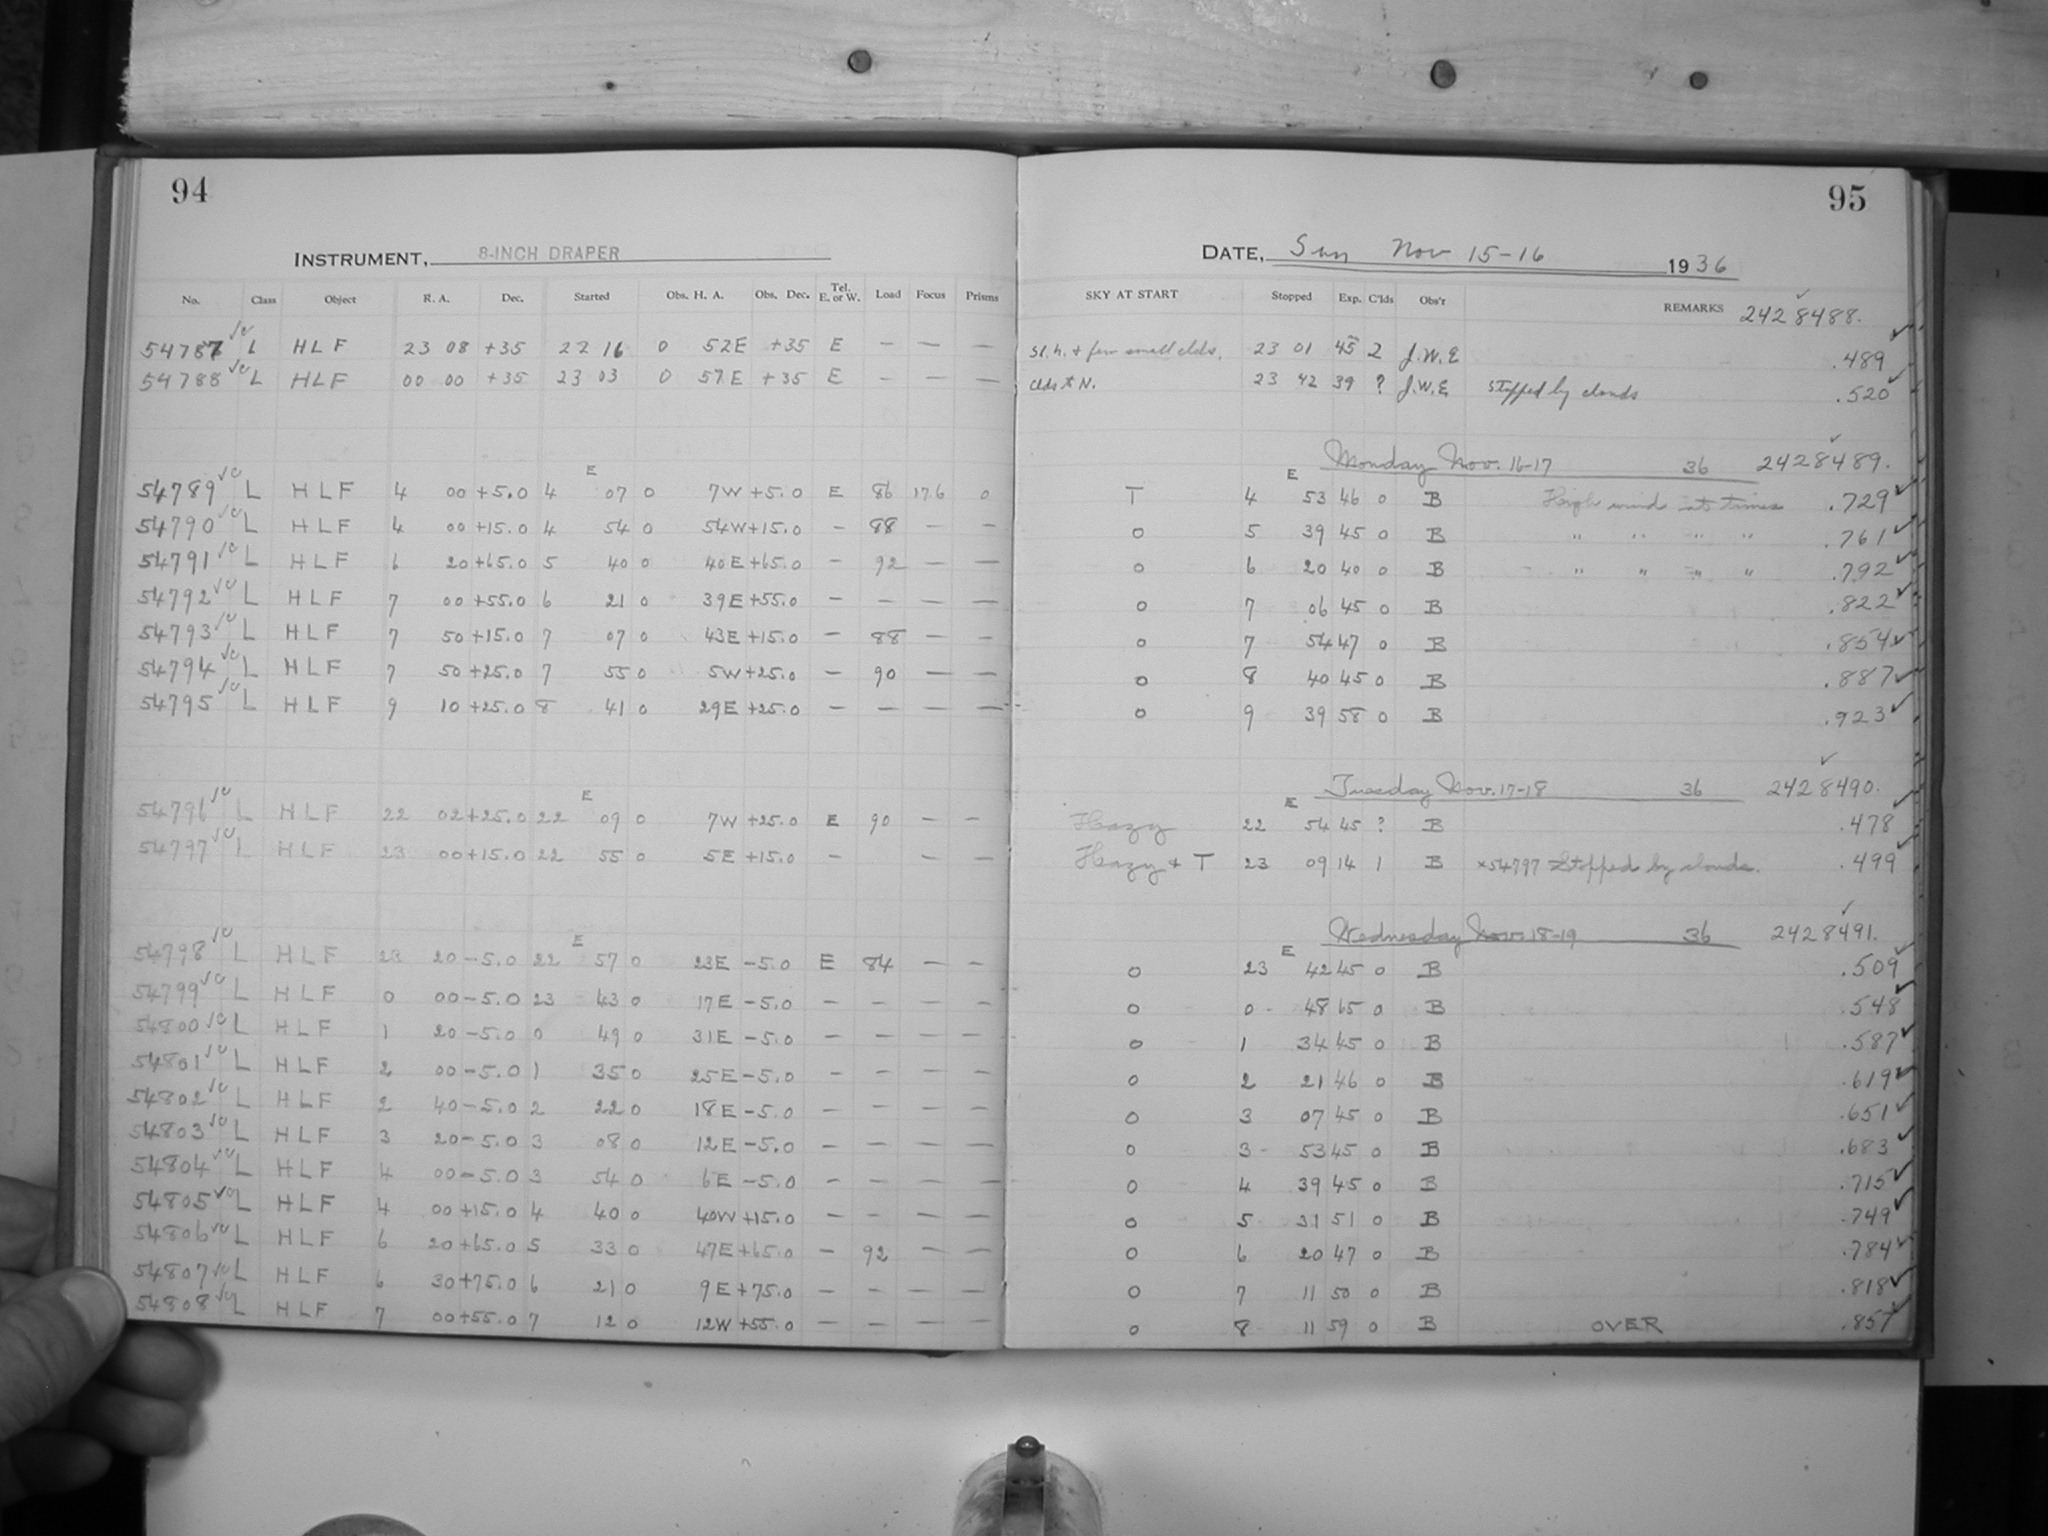 94
INSTRUMENT, 8-INCH DRAPER
No. Class Object R. A. Dec. Started Obs. H. A. Obs. Dec. Tel. E. or W. Load Focus Prisms
54787 L HLF 23 08 +35 22 16 0 52E +35 E — — —
54788 L HLF 00 00 +35 23 03 0 57E +35 E — — —
E
54789 L HLF 4 00 +5.0 4 07 0 7W +5.0 E 86 17.6 0
54790 L HLF 4 00 +15.0 4 54 0 54W +15.0 – 88 — —
54791 L HLF 6 20 +65.0 5 40 0 40E +65.0 – 92 — —
54792 L HLF 7 00 +55.0 6 21 0 39E +55.0 — — — —
54793 L HLF 7 50 +15.0 7 07 0 43E +15.0 — 88 — —
54794 L HLF 7 50 +25.0 7 55 0 5W +25.0 — 90 — —
54795 L HLF 9 10 +25.0 8 41 0 29E +25.0 — — — —
E
54796 L HLF 22 02 +25.0 22 09 0 7W +25.0 E 90 — —
54797 L HLF 23 00 +15.0 22 55 0 5E +15.0 — — —
E
54798 L HLF 23 20 –5.0 22 57 0 23E –5.0 E 84 — —
54799 L HLF 0 00 –5.0 23 43 0 17E –5.0 — — — —
54800 L HLF 1 20 –5.0 0 49 0 31E –5.0 — — — —
54801 L HLF 2 00 –5.0 1 35 0 25E –5.0 — — — —
54802 L HLF 2 40 –5.0 2 22 0 18E –5.0 — — — —
54803 L HLF 3 20 –5.0 3 08 0 12E –5.0 — — — —
54804 L HLF 4 00 –5.0 3 54 0 6E –5.0 — — — —
54805 L HLF 4 00 +15.0 4 40 0 40W +15.0 — — — —
54806 L HLF 6 20 +65.0 5 33 0 47E +65.0 — 92 — —
54807 L HLF 6 30 +75.0 6 21 0 9E +75.0 — — — —
54808 L HLF 7 00 +55.0 7 12 0 12W +55.0 — — — —
95
DATE, Sun Nov 15-16 1936
SKY AT START Stopped Exp. C'lds Obs'r REMARKS 2428488.
Sl. h. + few small clds. 23 01 45 2 J.W.E .489
Clds to N. 23 42 39 ? J.W.E Stopped by clouds .520
Monday Nov. 16-17 36 2428489.
E
T 4 53 46 0 B High wind at times .729
0 5 39 45 0 B " " " " .761
0 6 20 40 0 B " " " " .792
0 7 06 45 0 B .822
0 7 54 47 0 B .854
0 8 40 45 0 B .887
0 9 39 58 0 B .923
Tuesday Nov. 17-18 36 2428490.
E
Hazy 22 54 45 ? B .478
Hazy + T 23 09 14 1 B ×54797 Stopped by clouds. .499
Wednesday Nov. 18-19 36 2428491.
E
0 23 42 45 0 B .509
0 0 48 65 0 B .548
0 1 34 45 0 B .587
0 2 21 46 0 B .619
0 3 07 45 0 B .651
0 3 53 45 0 B .683
0 4 39 45 0 B .715
0 5 31 51 0 B .749
0 6 20 47 0 B .784
0 7 11 50 0 B .818
0 8 11 59 0 B OVER .857